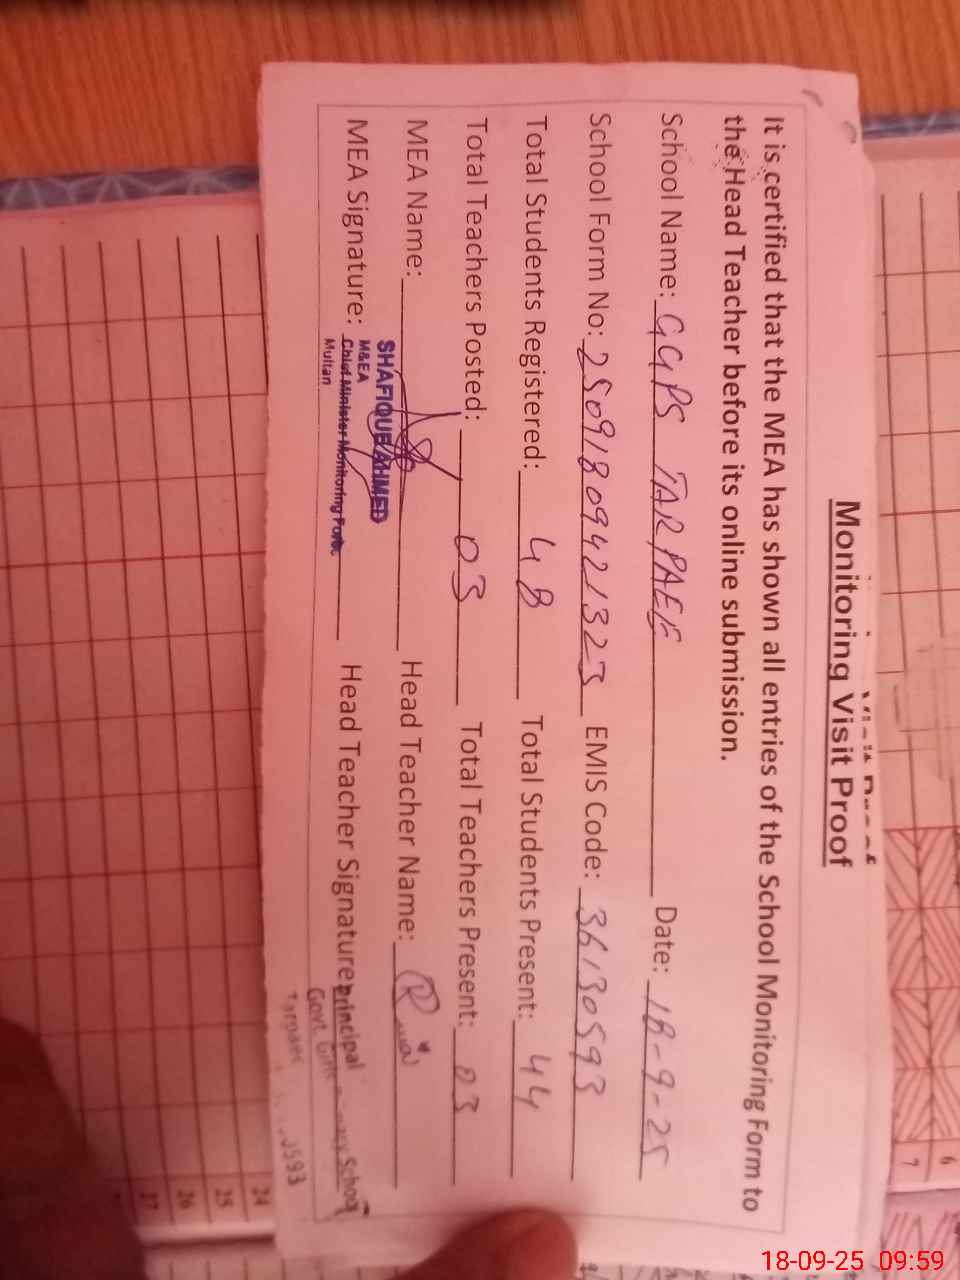 Monitoring Visit Proof
It is certified that the MEA has shown all entries of the School Monitoring Form to
the Head Teacher before its online submission.
School Name: GGPS TARPAEE Date: 18-9-25
School Form No: 25091809421323 EMIS Code: 36130593
Total Students Registered: 48 Total Students Present: 44
Total Teachers Posted: 03 Total Teachers Present: 03
MEA Name: Head Teacher Name:
SHAFIQUE AHMED
M&EA
MEA Signature: Chief Minister Monitoring Force Head Teacher Signature: Principal
Multan
Govt. School
0593
24
25
26
27
6
7
18-09-25 09:59